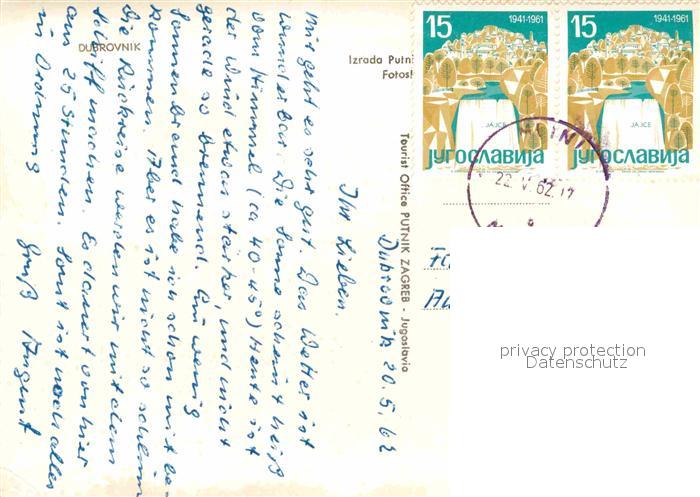 DUBROVNIK
Dubrovnik 20.5.62
Ihr Lieben.
Mir geht es sehr gut. Das Wetter ist
wunderbar. Die Sonne scheint heiß
vom Himmel (ca 40-45°) Heute ist
der Wind etwas stärker, und nicht
gerade so brennend. Ein wenig
Sonnenbrand habe ich schon mitbe-
kommen. Aber es ist nicht so schlimm
Die Rückreise werden wir mit dem
Schiff machen. Es dauert von hier
aus 25 Stunden. Sonst ist noch alles
in Ordnung
Gruß August
Izrada Putni
Fotos
Tourist Office PUTNIK ZAGREB - Jugoslavia
15
1941-1961
JAJCE
ЈУГОСЛАВИЈА
15
1941-1961
JAJCE
ЈУГОСЛАВИЈА
22.V.62.17
privacy protection
Datenschutz